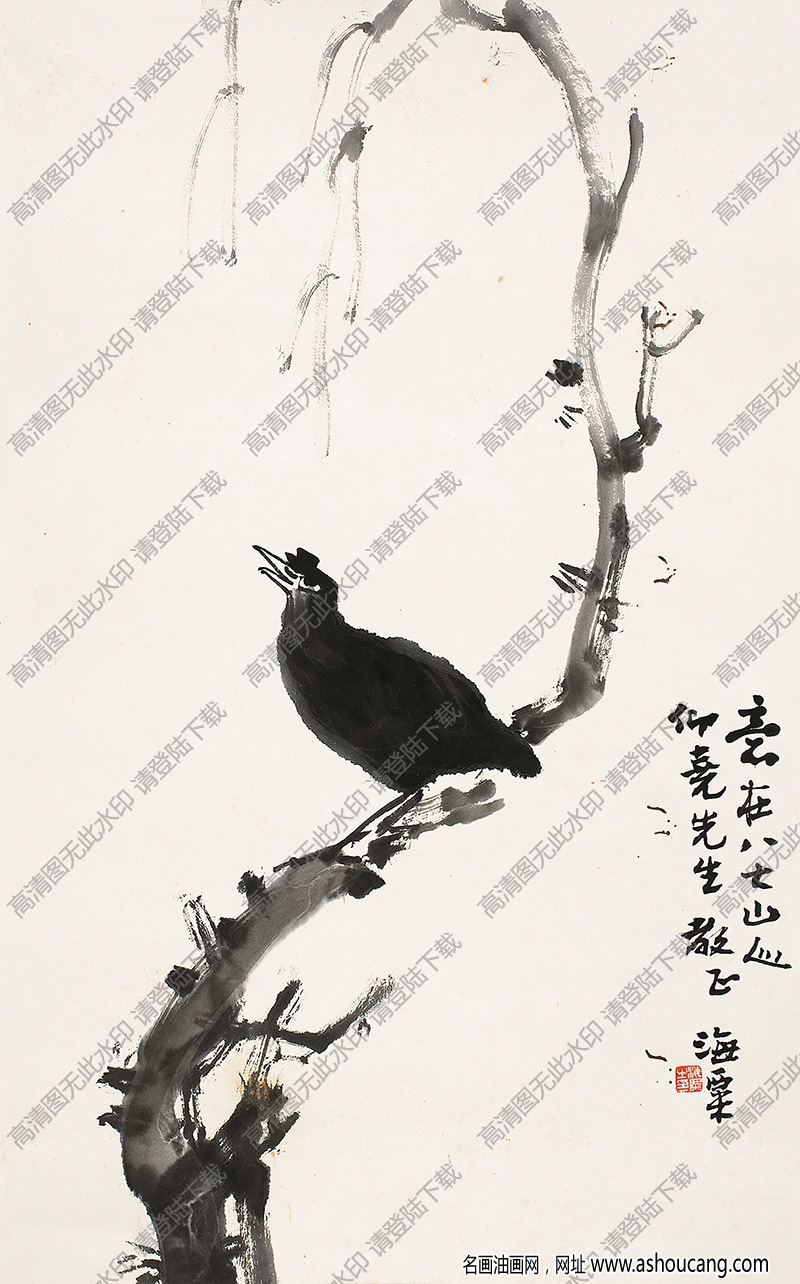 意在八大山人
仰尧先生 教正
海粟
高清图无此水印 请登陆下载
名画油画网，网址 www.ashoucang.com